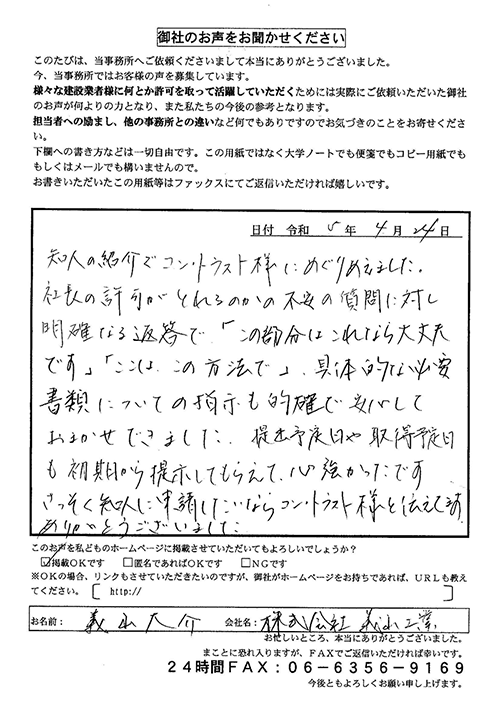 御社のお声をお聞かせください
このたびは、当事務所へご依頼くださいまして本当にありがとうございました。
今、当事務所ではお客様の声を募集しています。
様々な建設業者様に何とか許可を取って活躍していただくためには実際にご依頼いただいた御社
のお声が何よりの力となり、また私たちの今後の参考となります。
担当者への励まし、他の事務所との違いなど何でもありですのでお気づきのことをお寄せくださ
い。
下欄への書き方などは一切自由です。この用紙ではなく大学ノートでも便箋でもコピー用紙でも
もしくはメールでも構いませんので。
お書きいただいたこの用紙等はファックスにてご返信いただければ嬉しいです。
日付 令和 5 年 4 月 24 日
知人の紹介でコントラスト様にめぐりあえました。
社長の許可がとれるのかの不安の質問に対し
明確なる返答で、「この部分はこれなら大丈夫
です」「ここは、この方法で」、具体的な必要
書類についての指示も的確で安心して
おまかせできました。提出予定日や取得予定日
も初期から提示してもらえて、心強かったです
さっそく知人に申請したいならコントラスト様と伝えてます
ありがとうございました
このお声を私どものホームページに掲載させていただいてもよろしいでしょうか？
☑掲載OKです □匿名であればOKです □NGです
※OKの場合、リンクもさせていただきたいのですが、御社がホームページをお持ちであれば、URLも教え
てください。［ http:// ］
お名前： 義山大介 会社名： 株式会社 義山工業
お忙しいところ、本当にありがとうございました。
まことに恐れ入りますが、FAXでご返信いただければ幸いです。
24時間FAX：06-6356-9169
今後ともよろしくお願い申し上げます。